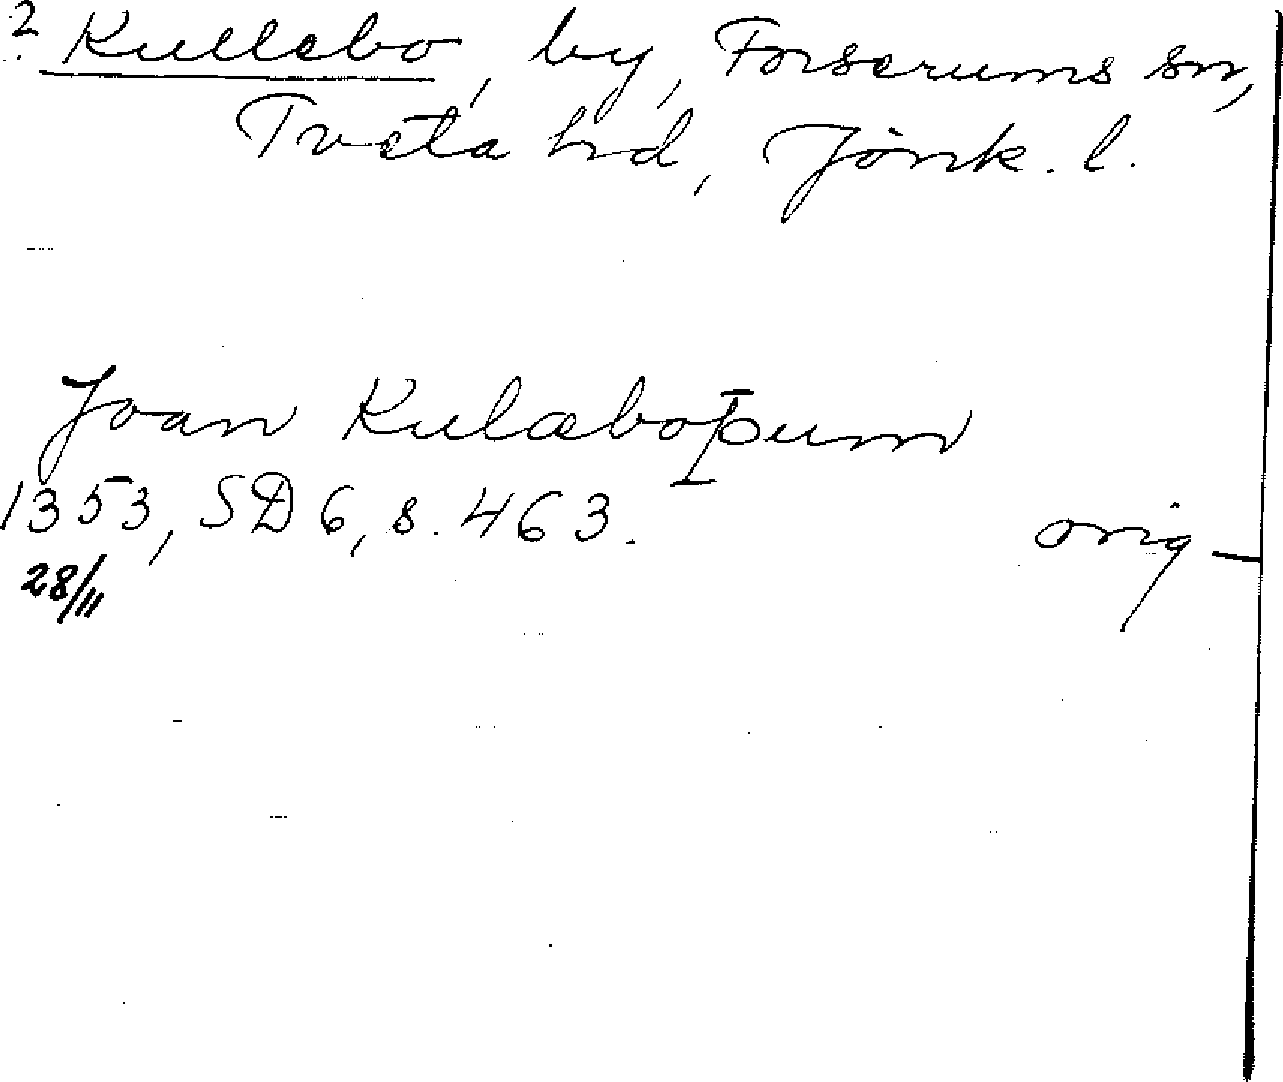 ? Kullebo, by, Forserums sn,
Tveta hd, Jönk. l.
Joan Kulaboþum
1353, SD 6, s. 463.
orig
28/11